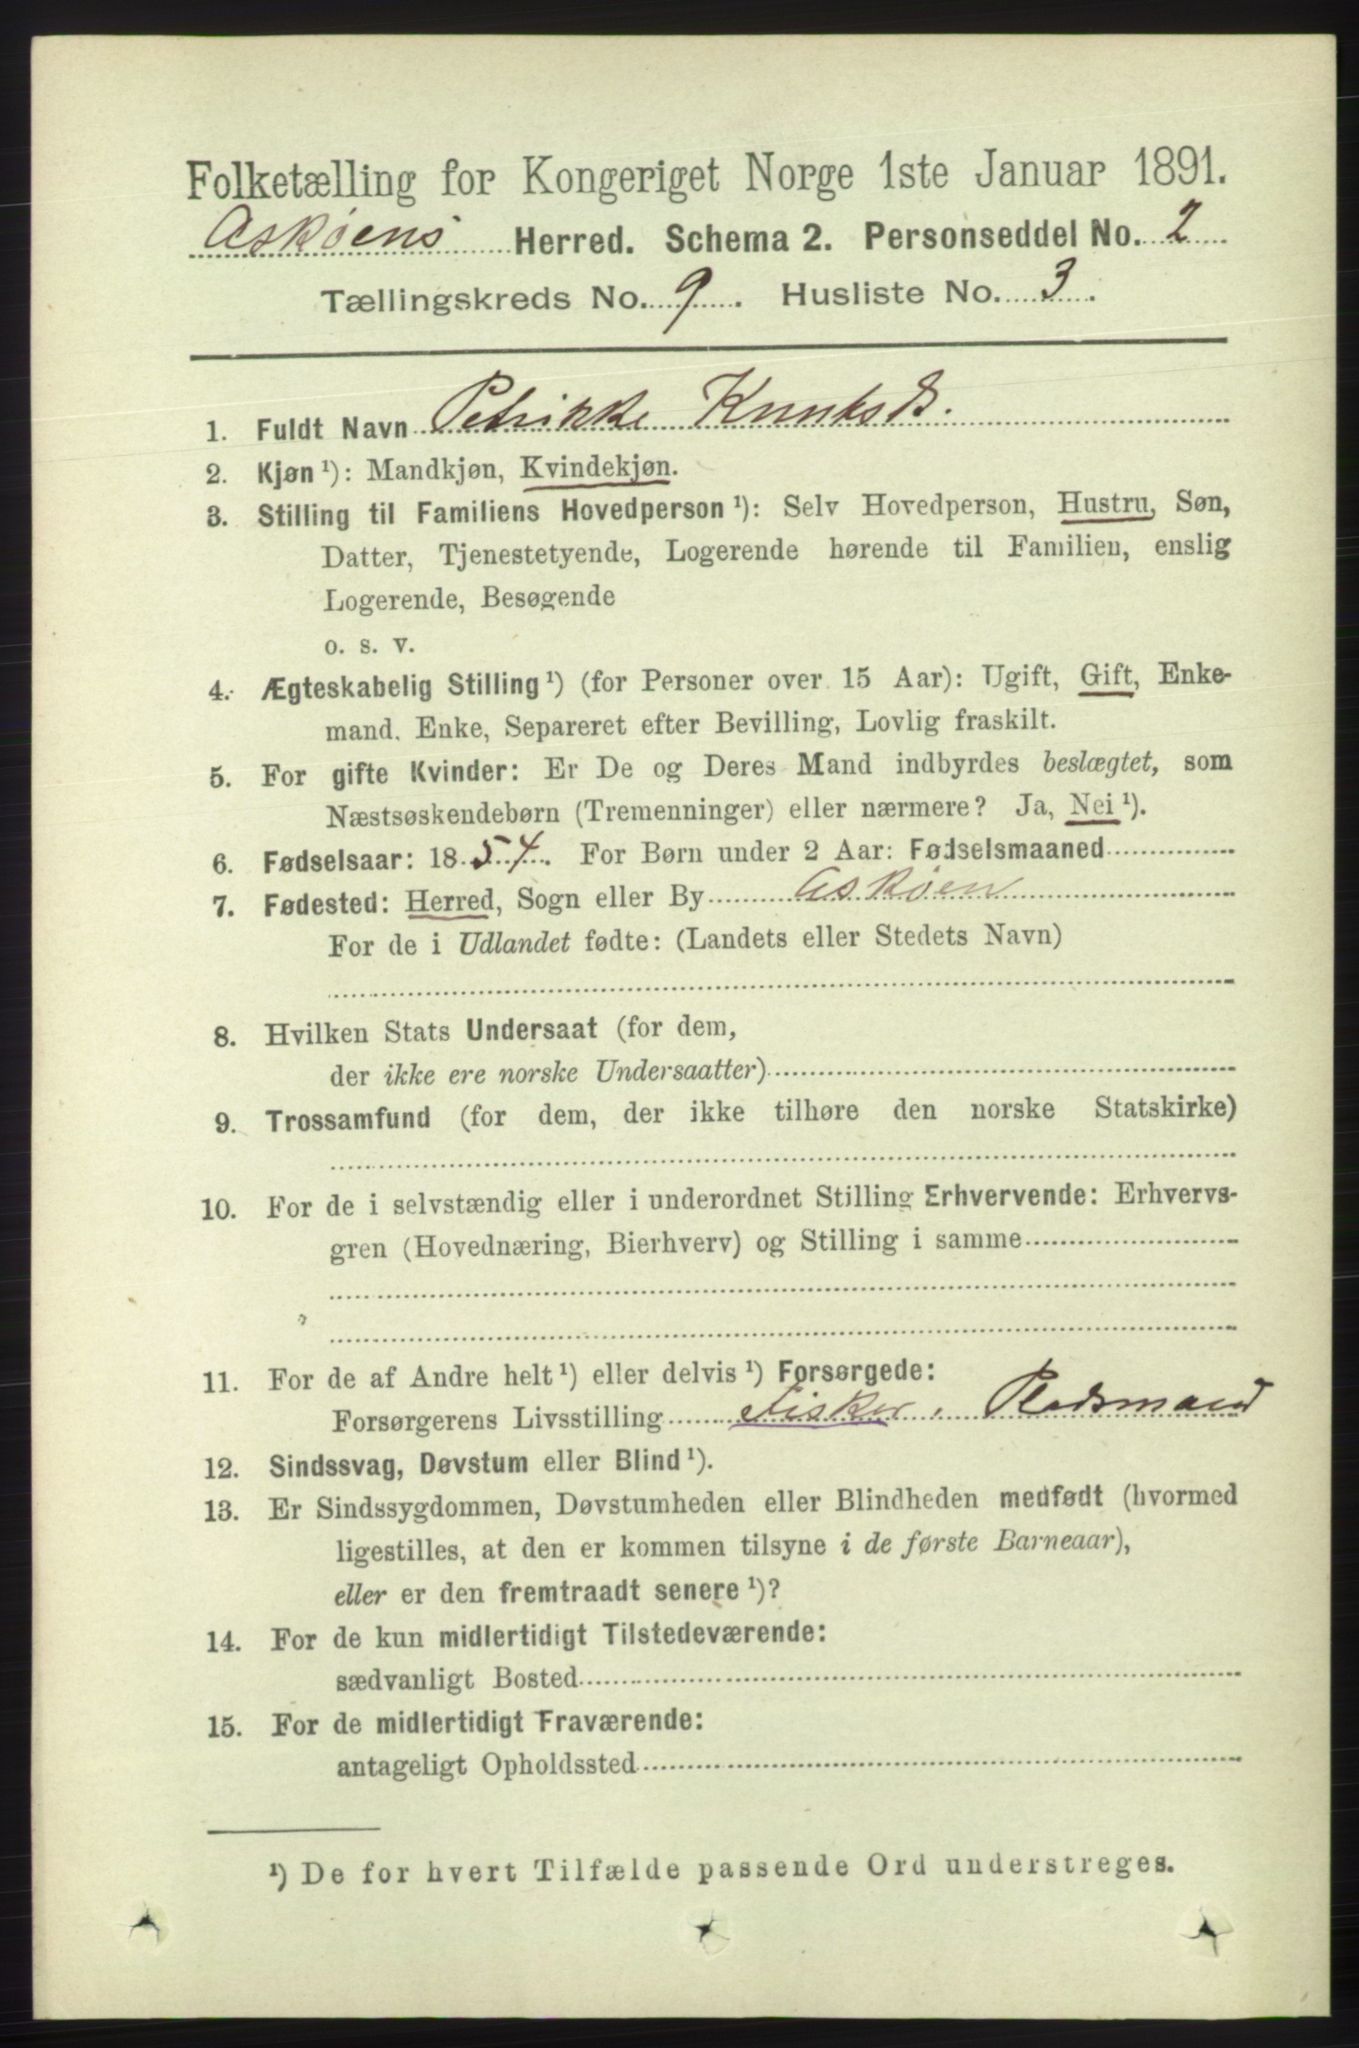 Folketælling for Kongeriget Norge 1ste Januar 1891.
Askøens Herred. Schema 2. Personseddel No. 2
Tællingskreds No. 9. Husliste No. 3.
1. Fuldt Navn Petrikke Knuts D.
2. Kjøn ¹): Mandkjøn, Kvindekjøn.
3. Stilling til Familiens Hovedperson ¹): Selv Hovedperson, Hustru, Søn,
Datter, Tjenestetyende, Logerende hørende til Familien, enslig
Logerende, Besøgende
o. s. v.
4. Ægteskabelig Stilling ¹) (for Personer over 15 Aar): Ugift, Gift, Enke-
mand, Enke, Separeret efter Bevilling, Lovlig fraskilt.
5. For gifte Kvinder: Er De og Deres Mand indbyrdes beslægtet, som
Næstsøskendebørn (Tremenninger) eller nærmere? Ja, Nei ¹).
6. Fødselsaar: 1854. For Børn under 2 Aar: Fødselsmaaned
7. Fødested: Herred, Sogn eller By Askøen
For de i Udlandet fødte: (Landets eller Stedets Navn)
8. Hvilken Stats Undersaat (for dem,
der ikke ere norske Undersaatter)
9. Trossamfund (for dem, der ikke tilhøre den norske Statskirke)
10. For de i selvstændig eller i underordnet Stilling Erhvervende: Erhvervs-
gren (Hovednæring, Bierhverv) og Stilling i samme
11. For de af Andre helt ¹) eller delvis ¹) Forsørgede:
Forsørgerens Livsstilling Fisker, Pladsmand
12. Sindssvag, Døvstum eller Blind ¹).
13. Er Sindssygdommen, Døvstumheden eller Blindheden medfødt (hvormed
ligestilles, at den er kommen tilsyne i de første Barneaar),
eller er den fremtraadt senere ¹)?
14. For de kun midlertidigt Tilstedeværende:
sædvanligt Bosted
15. For de midlertidigt Fraværende:
antageligt Opholdssted
¹) De for hvert Tilfælde passende Ord understreges.